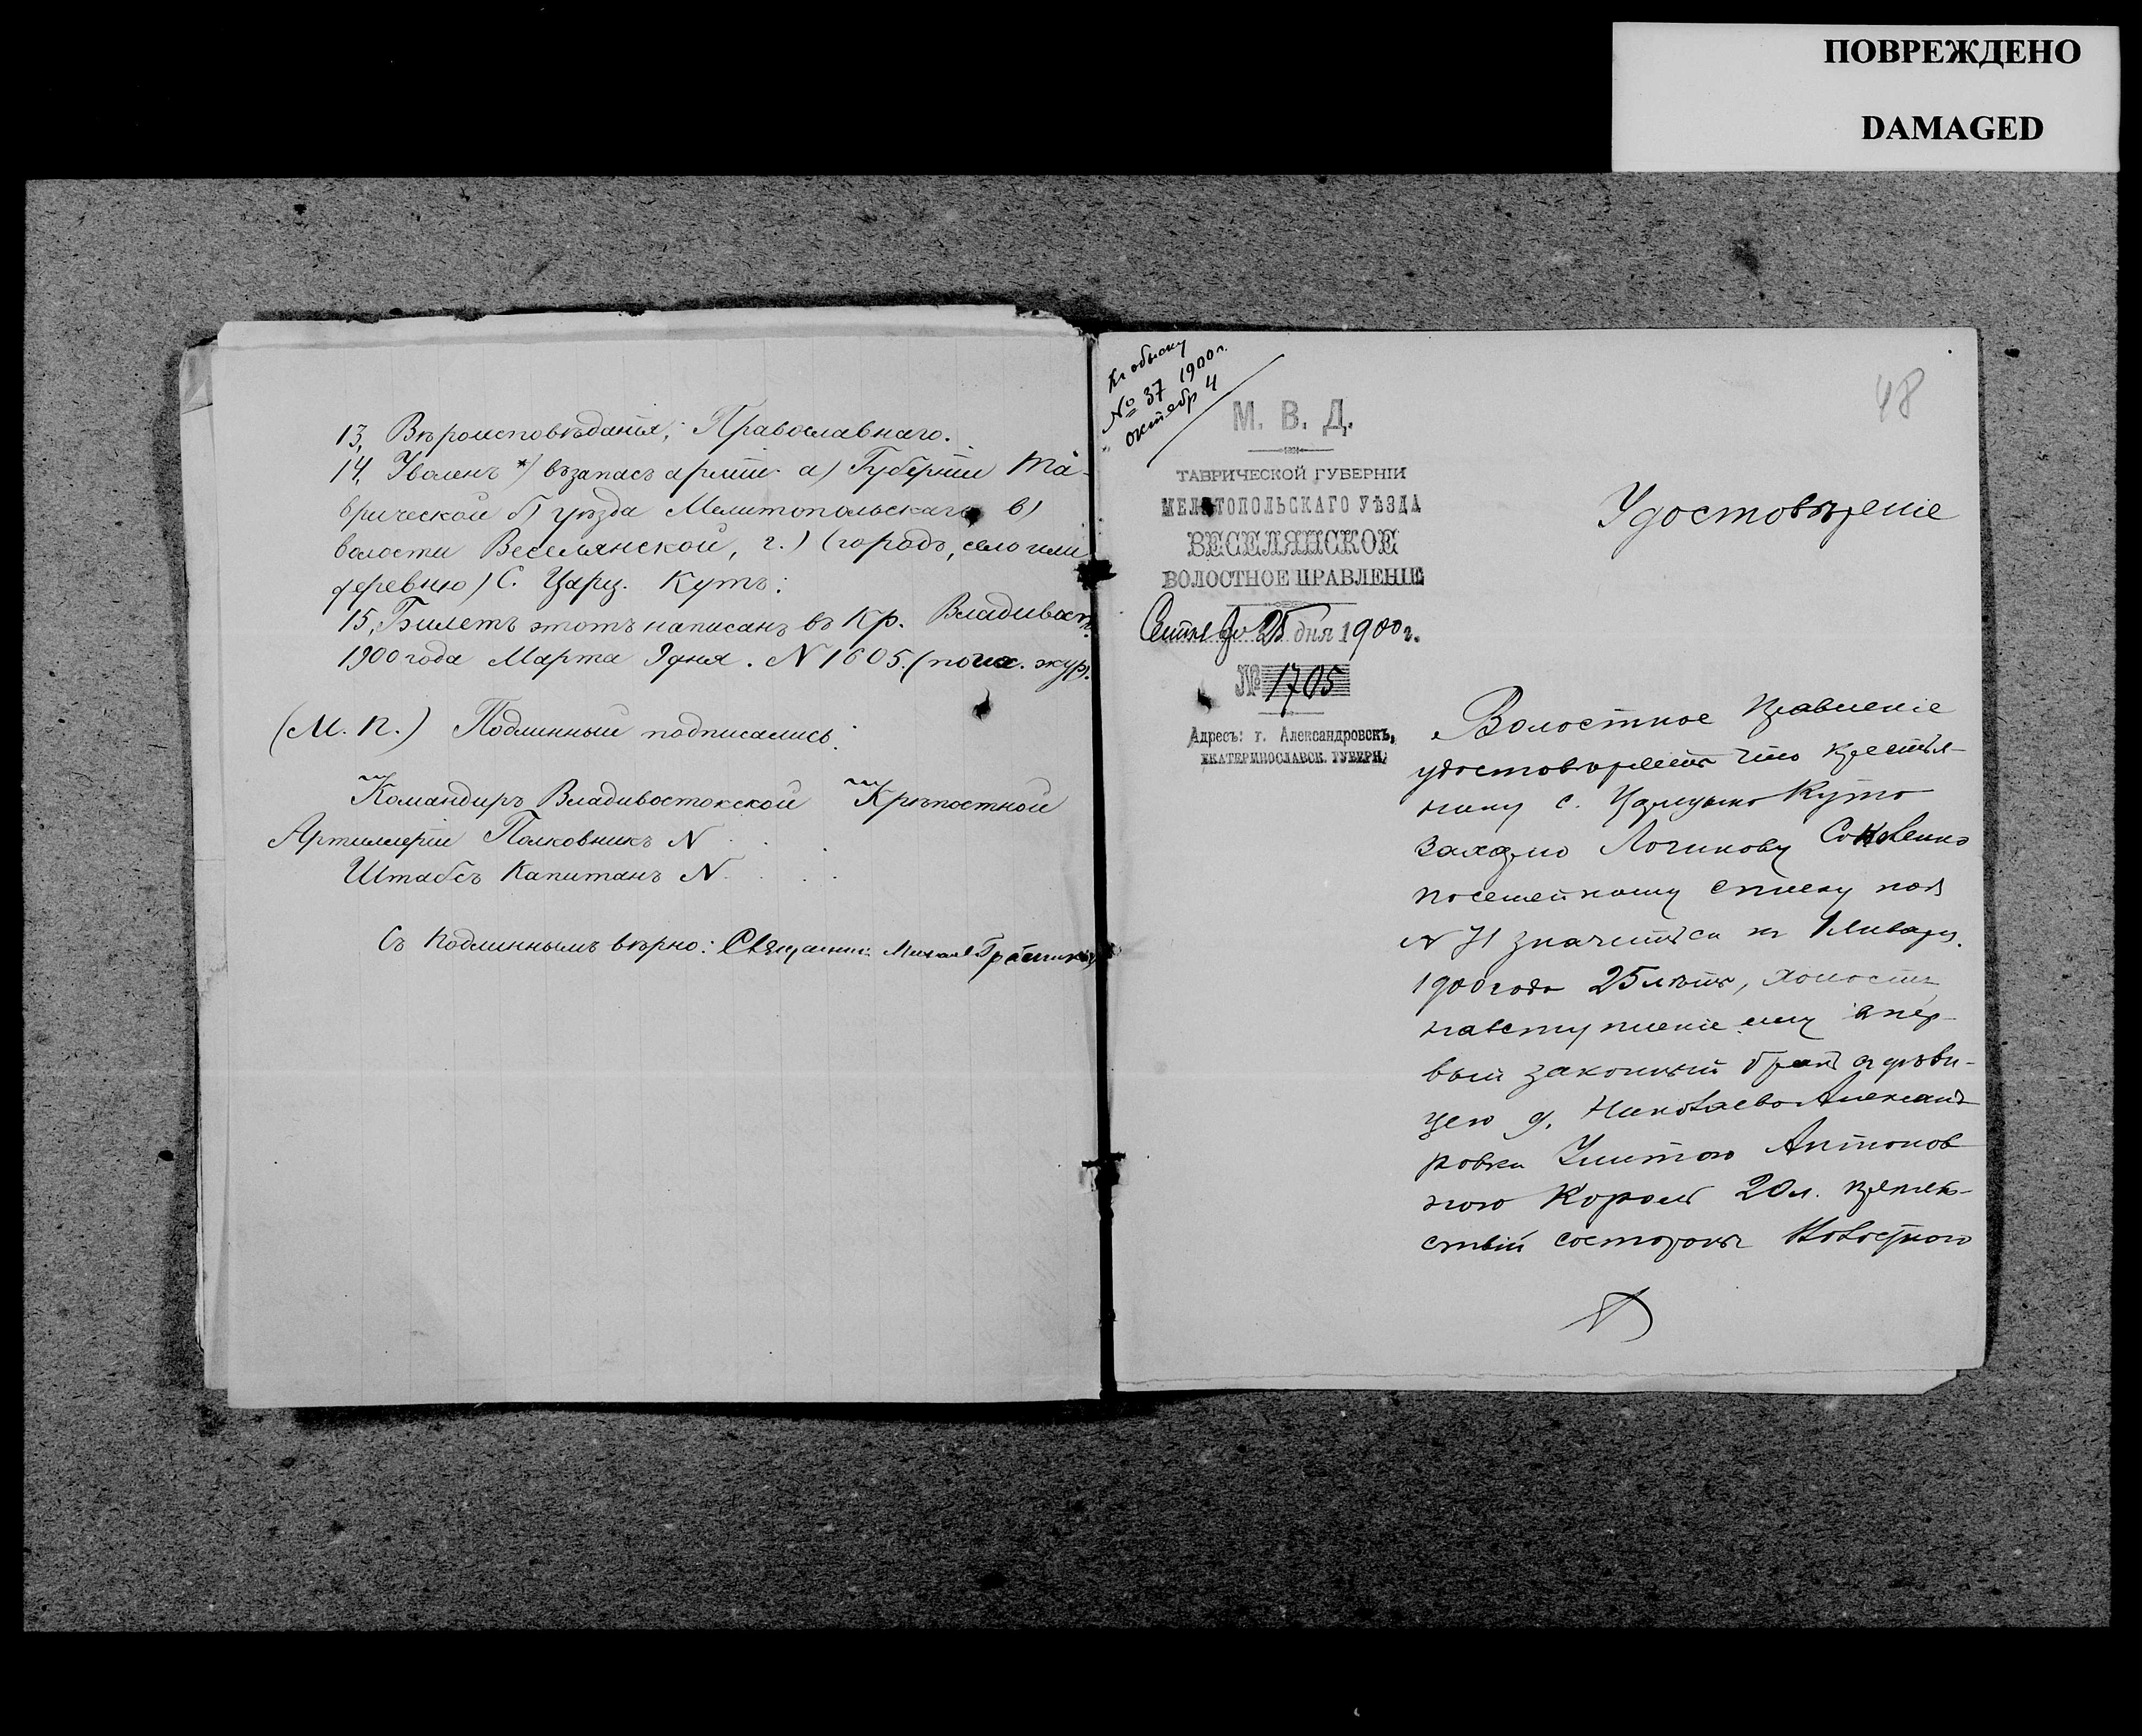 ПОВРЕЖДЕНО
DAMAGED
13, Вѣроисповѣданія; Православнаго.
14, Уволенъ *) въ запасъ арміи а) Губерніи Та-
врической б) уѣзда Мелитопольскаго в)
волости Веселянской, г.) (городъ, село или
деревню) С. Цариц. Кутъ:
15, Билетъ этотъ написанъ въ Кр. Владивост.
1900 года Марта 9 дня. N 1605. (по исх. жур.
(М. П.) Подлинный подписались:
Командиръ Владивостокской Крѣпостной
Артиллеріи Полковникъ N . . .
Штабсъ Капитанъ N . . .
Съ подлиннымъ вѣрно: Священникъ Михаил
Къ обыску
№ 37 1900 г.
октябр 4
48
М. В. Д.
ТАВРИЧЕСКОЙ ГУБЕРНІИ
МЕЛИТОПОЛЬСКАГО УѢЗДА
ВЕСЕЛЯНСКОЕ
ВОЛОСТНОЕ ПРАВЛЕНІЕ
Сентября 25 дня 1900 г.
№ 1705
Адресъ: г. Александровскъ,
ЕКАТЕРИНОСЛАВСК. ГУБЕРН.
Удостовѣреніе
Волостное Правленіе
удостовѣряетъ что крестья-
нину с. Царицыно Кута
Захарію Логинову Соковенко
посемейному списку под
N 71 значится къ 1 Января
1900 года 25 лѣтъ, холостъ
на вступленіе ему в пер-
вый законный бракъ съ дѣви-
цею д. Николаево Александ
ровки Улитою Антонов
ною Король 20 л. препят-
ствій со стороны Волостного